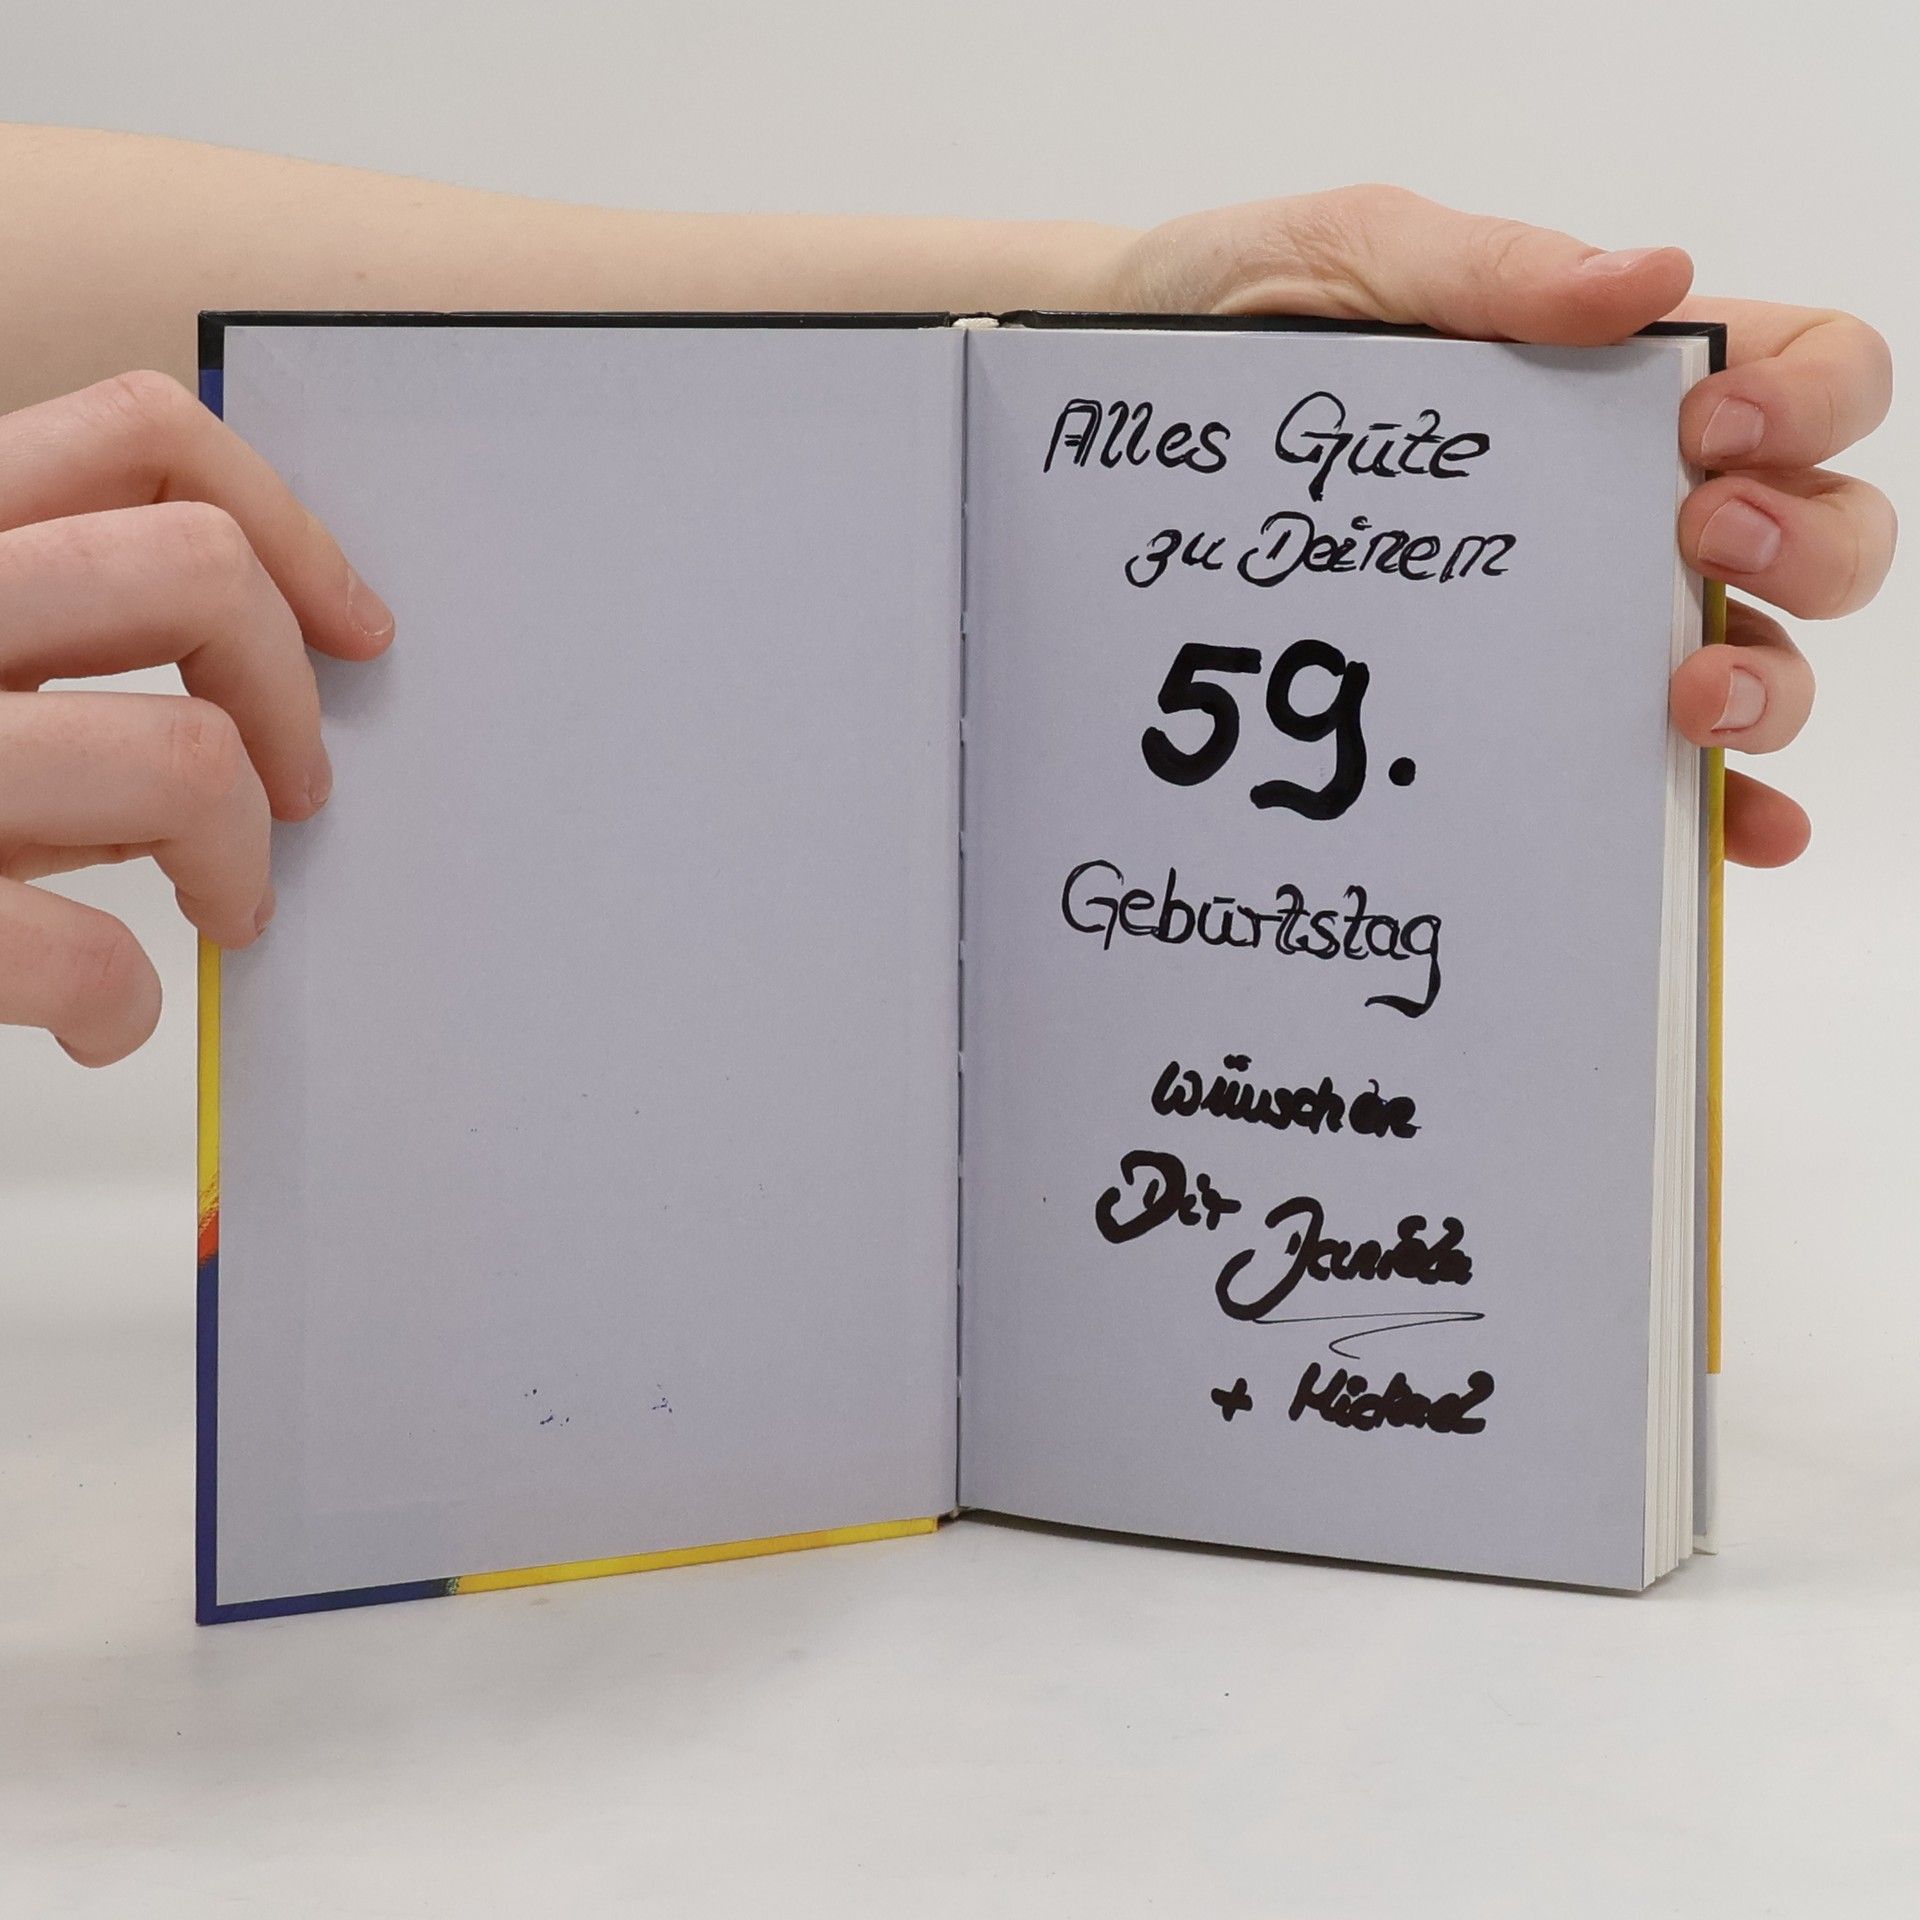 Alles Gute
zu Deinem
59.
Geburtstag
wünschen
Dir Daniela
+ Michael